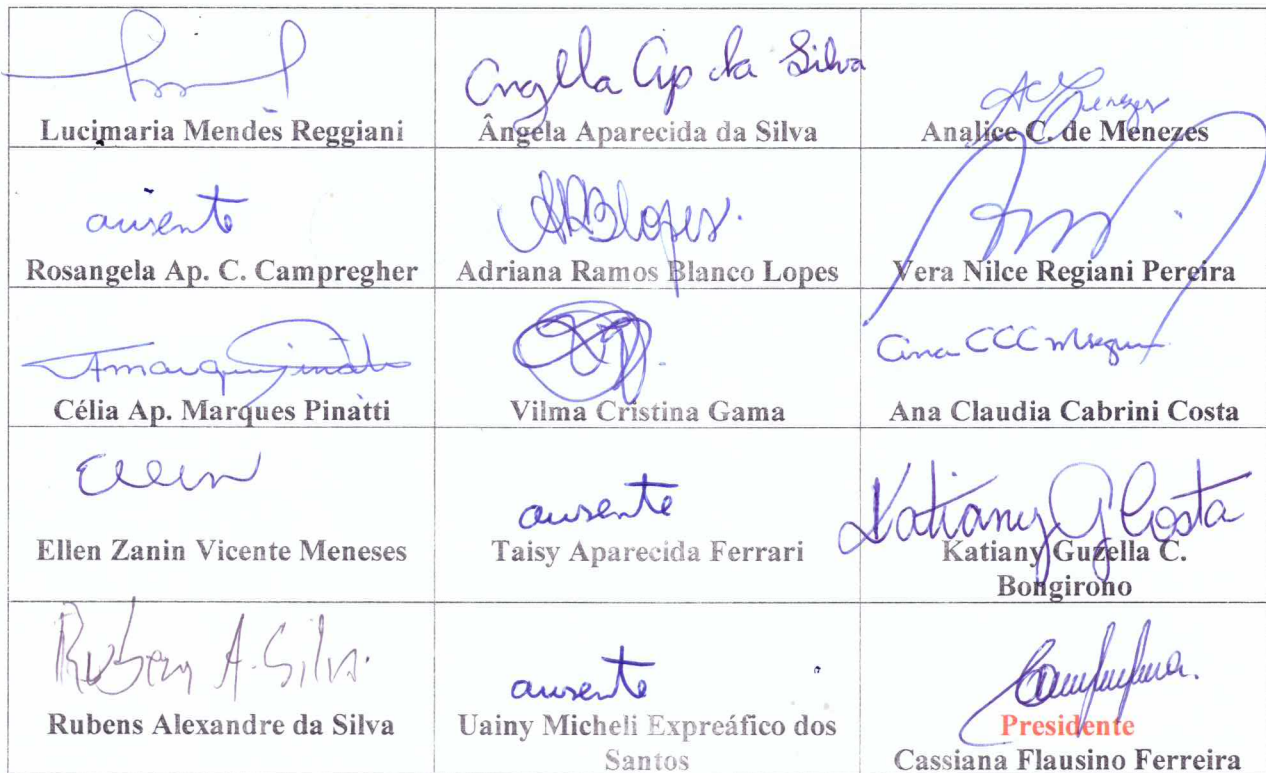 Lucimaria Mendes Reggiani
Angella Ap da Silva
Ângela Aparecida da Silva
Analice C. de Menezes
ausente
Rosangela Ap. C. Campregher
ARBlopes.
Adriana Ramos Blanco Lopes
Vera Nilce Regiani Pereira
Célia Ap. Marques Pinatti
Vilma Cristina Gama
Ana Claudia Cabrini Costa
Ellen
Ellen Zanin Vicente Meneses
ausente
Taisy Aparecida Ferrari
Katiany G Costa
Katiany Guzella C.
Bongirono
Rubens A. Silva
Rubens Alexandre da Silva
ausente
Uainy Micheli Expreáfico dos
Santos
Presidente
Cassiana Flausino Ferreira